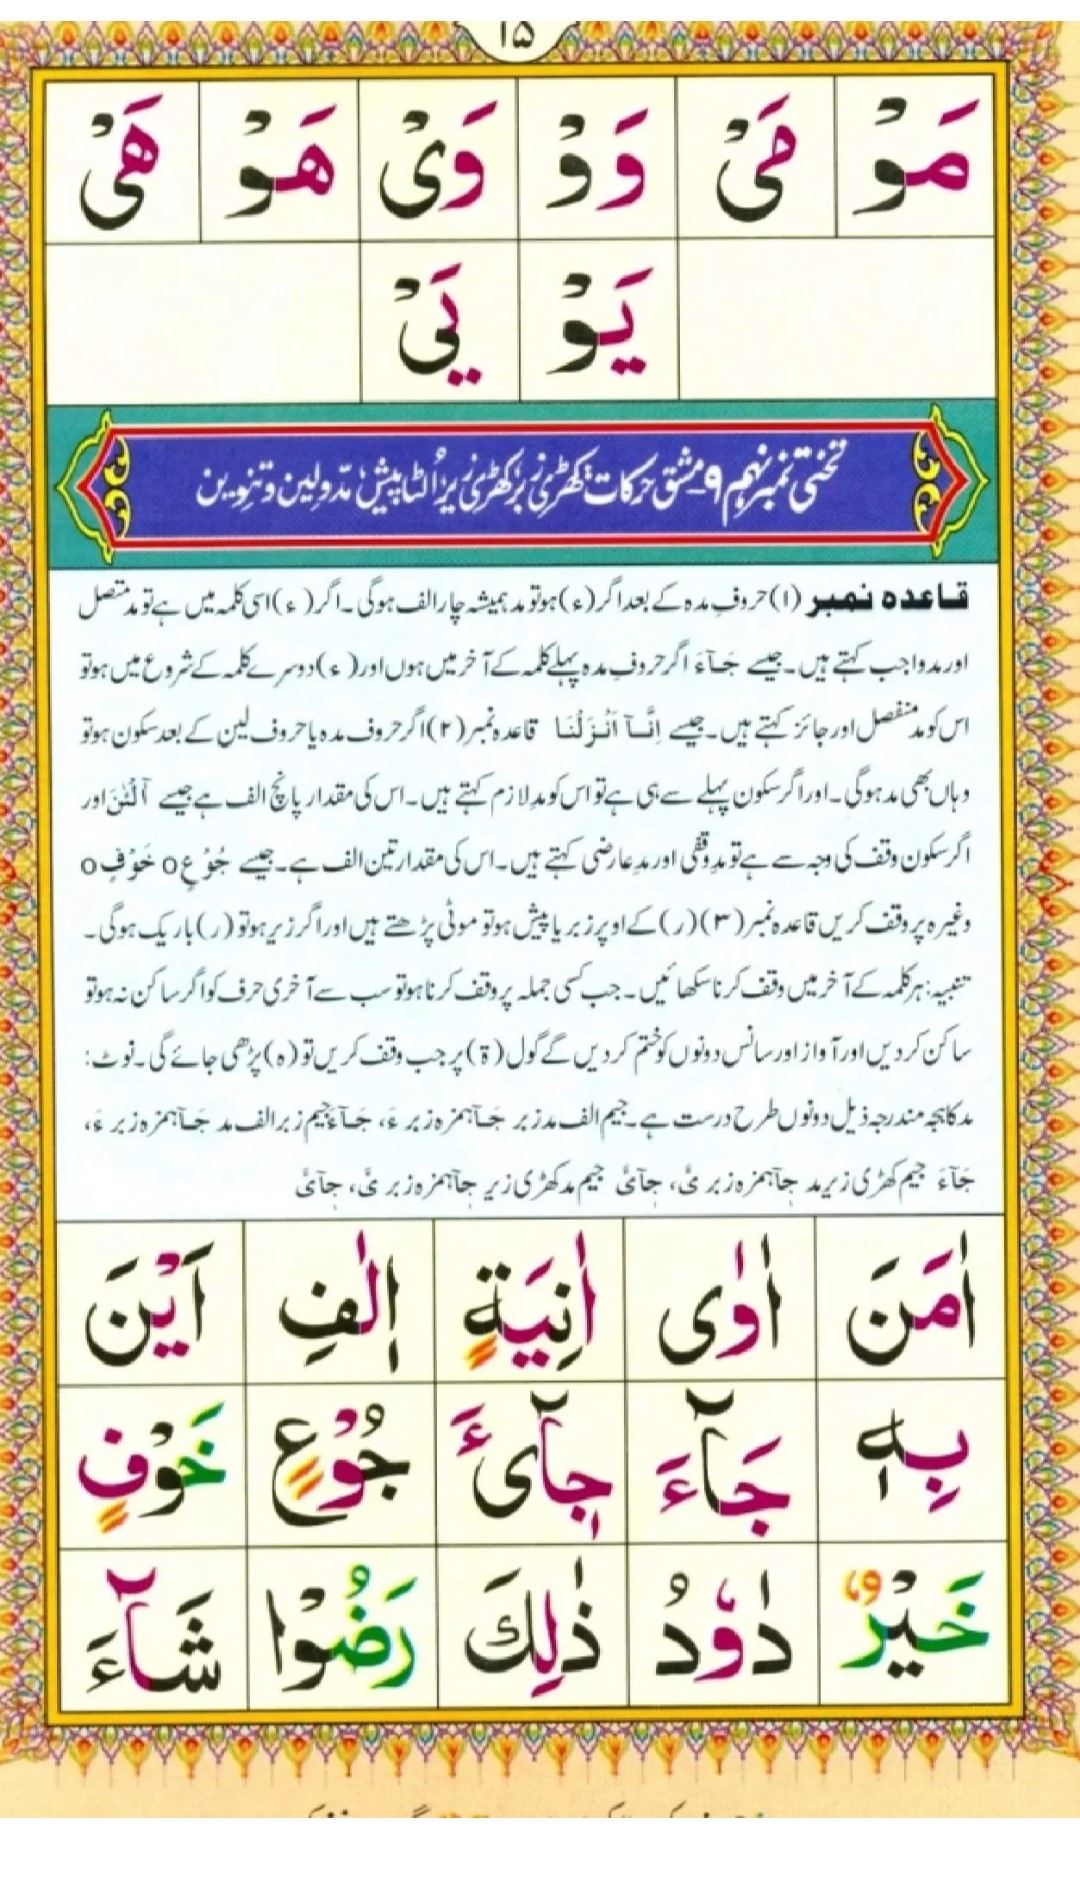 ۱۵
مَوْ مَیْ وَوْ وَیْ هَوْ هَیْ
یَوْ یَیْ
تختی نمبر نہم ۹۔ مشق حرکات، کھڑی زبر، کھڑی زیر، اُلٹا پیش، مدّ و لین و تنوین
قاعدہ نمبر (۱) حروفِ مدہ کے بعد اگر (ء) ہو تو مد ہمیشہ چار الف ہوگی۔ اگر (ء) اسی کلمہ میں ہے تو مد متصل
اور مد واجب کہتے ہیں۔ جیسے جَآءَ اگر حروفِ مدہ پہلے کلمہ کے آخر میں ہوں اور (ء) دوسرے کلمہ کے شروع میں ہو تو
اس کو مد منفصل اور جائز کہتے ہیں۔ جیسے اِنَّآ اَنْزَلْنَا قاعدہ نمبر (۲) اگر حروف مدہ یا حروف لین کے بعد سکون ہو تو
وہاں بھی مد ہوگی۔ اور اگر سکون پہلے سے ہی ہے تو اس کو مد لازم کہتے ہیں۔ اس کی مقدار پانچ الف ہے جیسے آلْئٰنَ اور
اگر سکون وقف کی وجہ سے ہے تو مد وقفی اور مد عارضی کہتے ہیں۔ اس کی مقدار تین الف ہے۔ جیسے جُوْعٍ o خَوْفٍ o
وغیرہ پر وقف کریں قاعدہ نمبر (۳) (ر) کے اوپر زبر یا پیش ہو تو موٹی پڑھتے ہیں اور اگر زیر ہو تو (ر) باریک ہوگی۔
تنبیہ: ہر کلمہ کے آخر میں وقف کرنا سکھائیں۔ جب کسی جملہ پر وقف کرنا ہو تو سب سے آخری حرف کو اگر ساکن نہ ہو تو
ساکن کر دیں اور آواز اور سانس دونوں کو ختم کر دیں گے گول (ة) پر جب وقف کریں تو (ہ) پڑھی جائے گی۔ نوٹ:
مد کا ہجہ مندرجہ ذیل دونوں طرح درست ہے۔ جیم الف مد زبر جَآ ہمزہ زبر ءَ، جَآءَ جیم زبر الف مد جَآ ہمزہ زبر ءَ،
جَآءَ جیم کھڑی زیر مد جآ ہمزہ زبر ئَ، جآئَ جیم مد کھڑی زیر جآ ہمزہ زبر ئَ، جآئَ
اٰمَنَ اٰوٰی اٰنِیَةٍ اٖلٰفِ اَیْنَ
بِهٖ جَآءَ جِآیْٓءَ جُوْعٍ خَوْفٍ
خَیْرٌ دٰوٗدُ ذٰلِكَ رَضُوْا شَآءَ